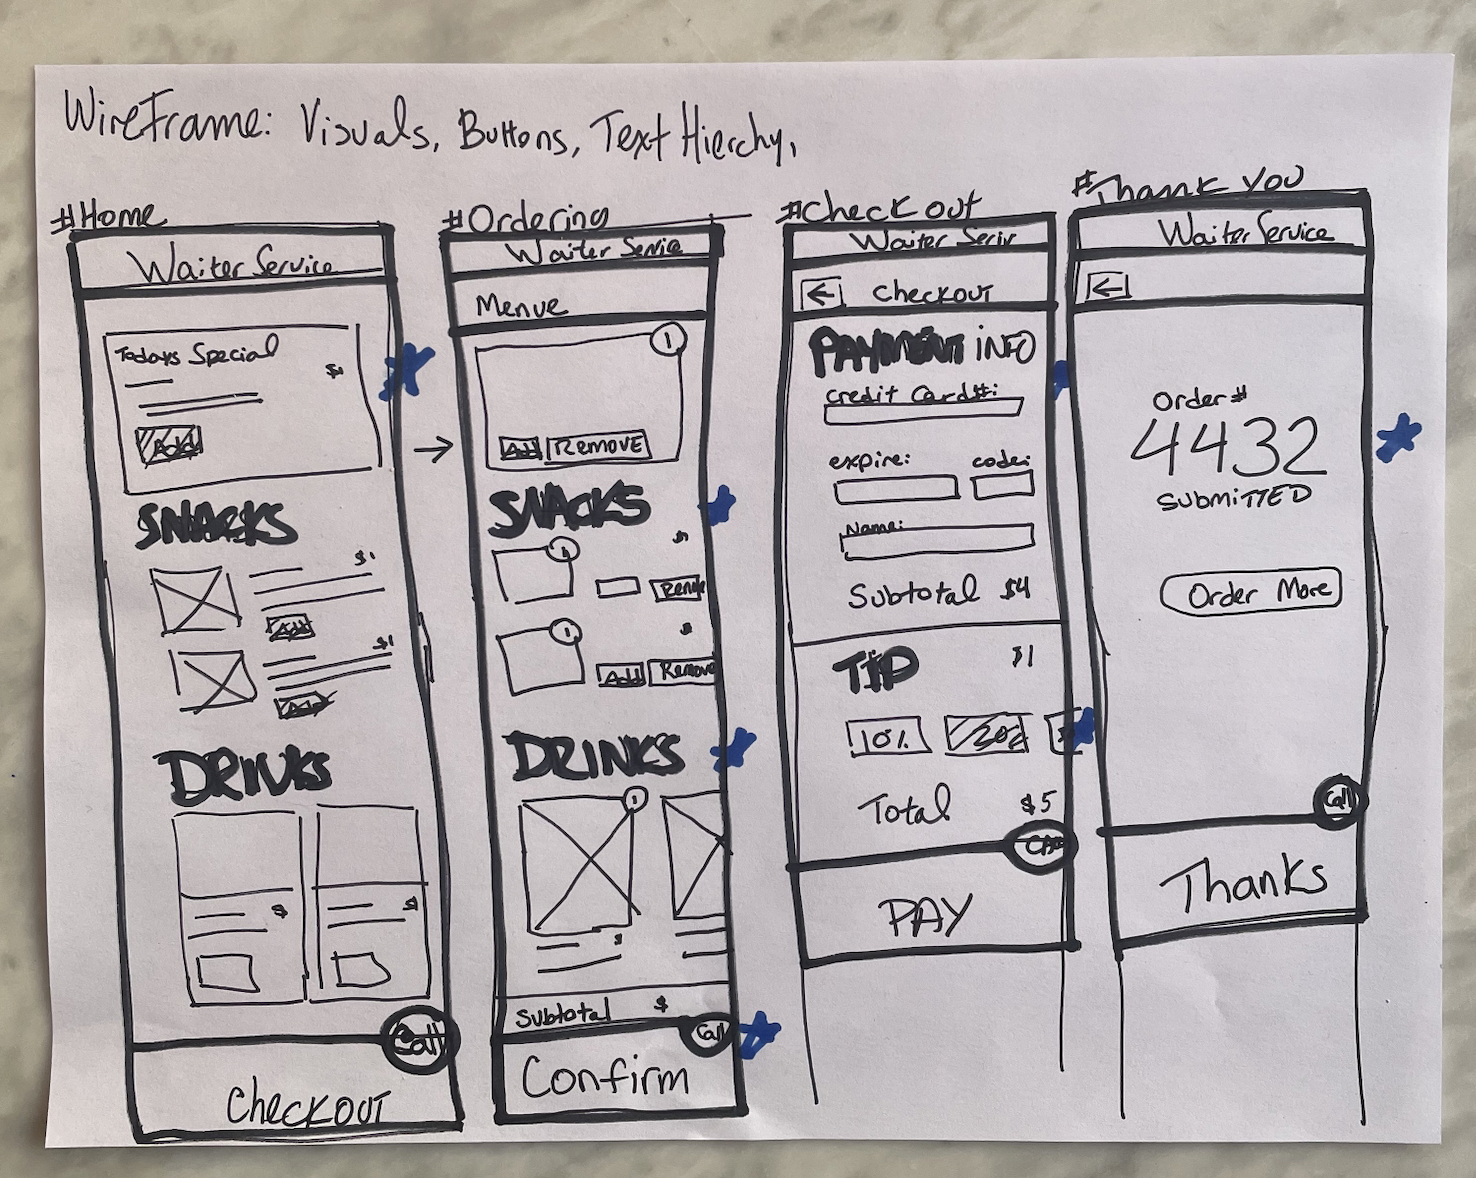 WireFrame: Visuals, Buttons, Text Hierchy,
#Home
Waiter Service
Todays Special
$1
Add
SNACKS
$1
Add
$1
Add
DRINKS
$
$
Call
Checkout
#Ordering
Waiter Service
Menue
1
Add Remove
SNACKS
1
1
Add Remove
DRINKS
1
$
Subtotal $
Call
Confirm
#Checkout
Waiter Serviv
← Checkout
PAYMENT INFO
Credit Card#:
expire: code:
Name:
Subtotal $4
TIP $1
10% 20%
Total $5
Call
PAY
#Thank You
Waiter Service
←
Order#
4432
SUBMITTED
Order More
Call
Thanks